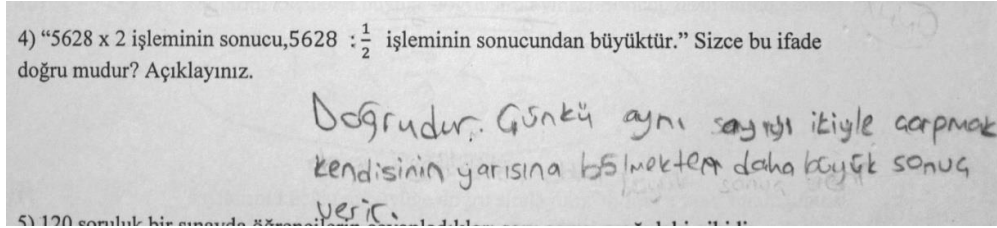 4) “5628 x 2 işleminin sonucu,5628 : 1/2 işleminin sonucundan büyüktür.” Sizce bu ifade
doğru mudur? Açıklayınız.
Doğrudur. Çünkü aynı sayıyı ikiyle çarpmak
kendisinin yarısına bölmekten daha büyük sonuç
verir.
5) 120 soruluk bir sınavda